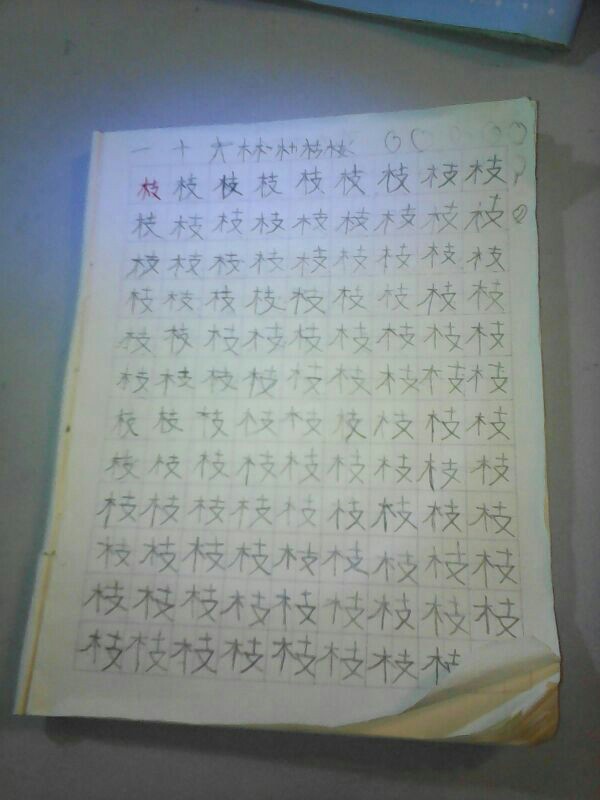 一 十 木
枝 枝 枝 枝 枝 枝 枝 枝 枝
枝 枝 枝 枝 枝 枝 枝 枝 枝
枝 枝 枝 枝 枝 枝 枝 枝 枝
枝 枝 枝 枝 枝 枝 枝 枝 枝
枝 枝 枝 枝 枝 枝 枝 枝 枝
枝 枝 枝 枝 枝 枝 枝 枝 枝
枝 枝 枝 枝 枝 枝 枝 枝 枝
枝 枝 枝 枝 枝 枝 枝 枝 枝
枝 枝 枝 枝 枝 枝 枝 枝 枝
枝 枝 枝 枝 枝 枝 枝 枝 枝
枝 枝 枝 枝 枝 枝 枝 枝 枝
枝 枝 枝 枝 枝 枝 枝